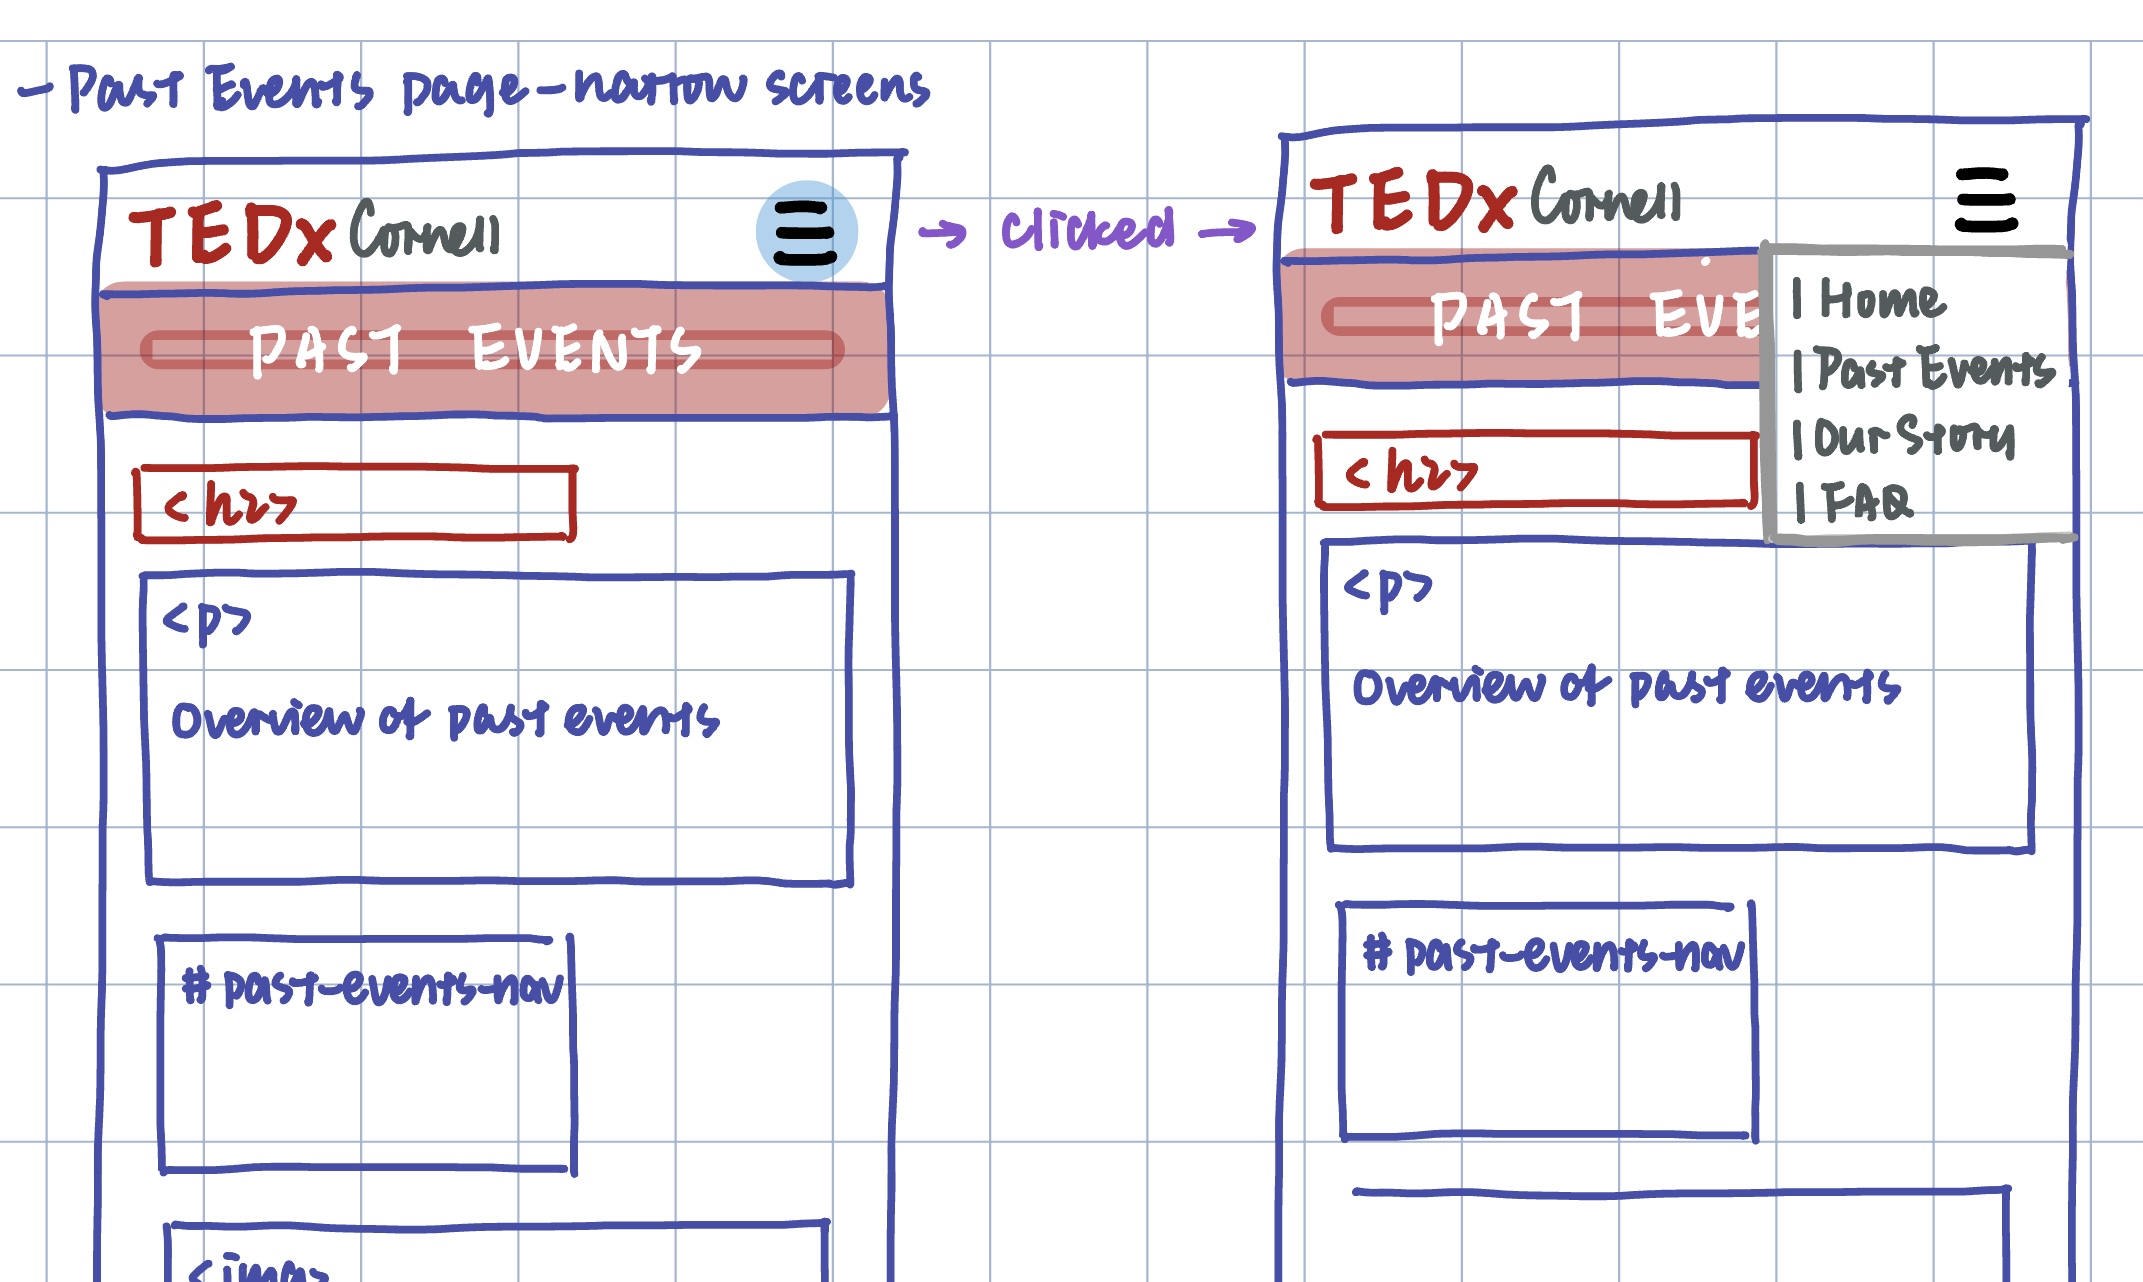 - Past Events page - narrow screens
TEDx Cornell
PAST EVENTS
<h2>
<p>
Overview of past events
# past-events-nav
<img>
→ clicked →
TEDx Cornell
PAST EVE
| Home
| Past Events
| Our Story
| FAQ
<h2>
<p>
Overview of past events
# past-events-nav